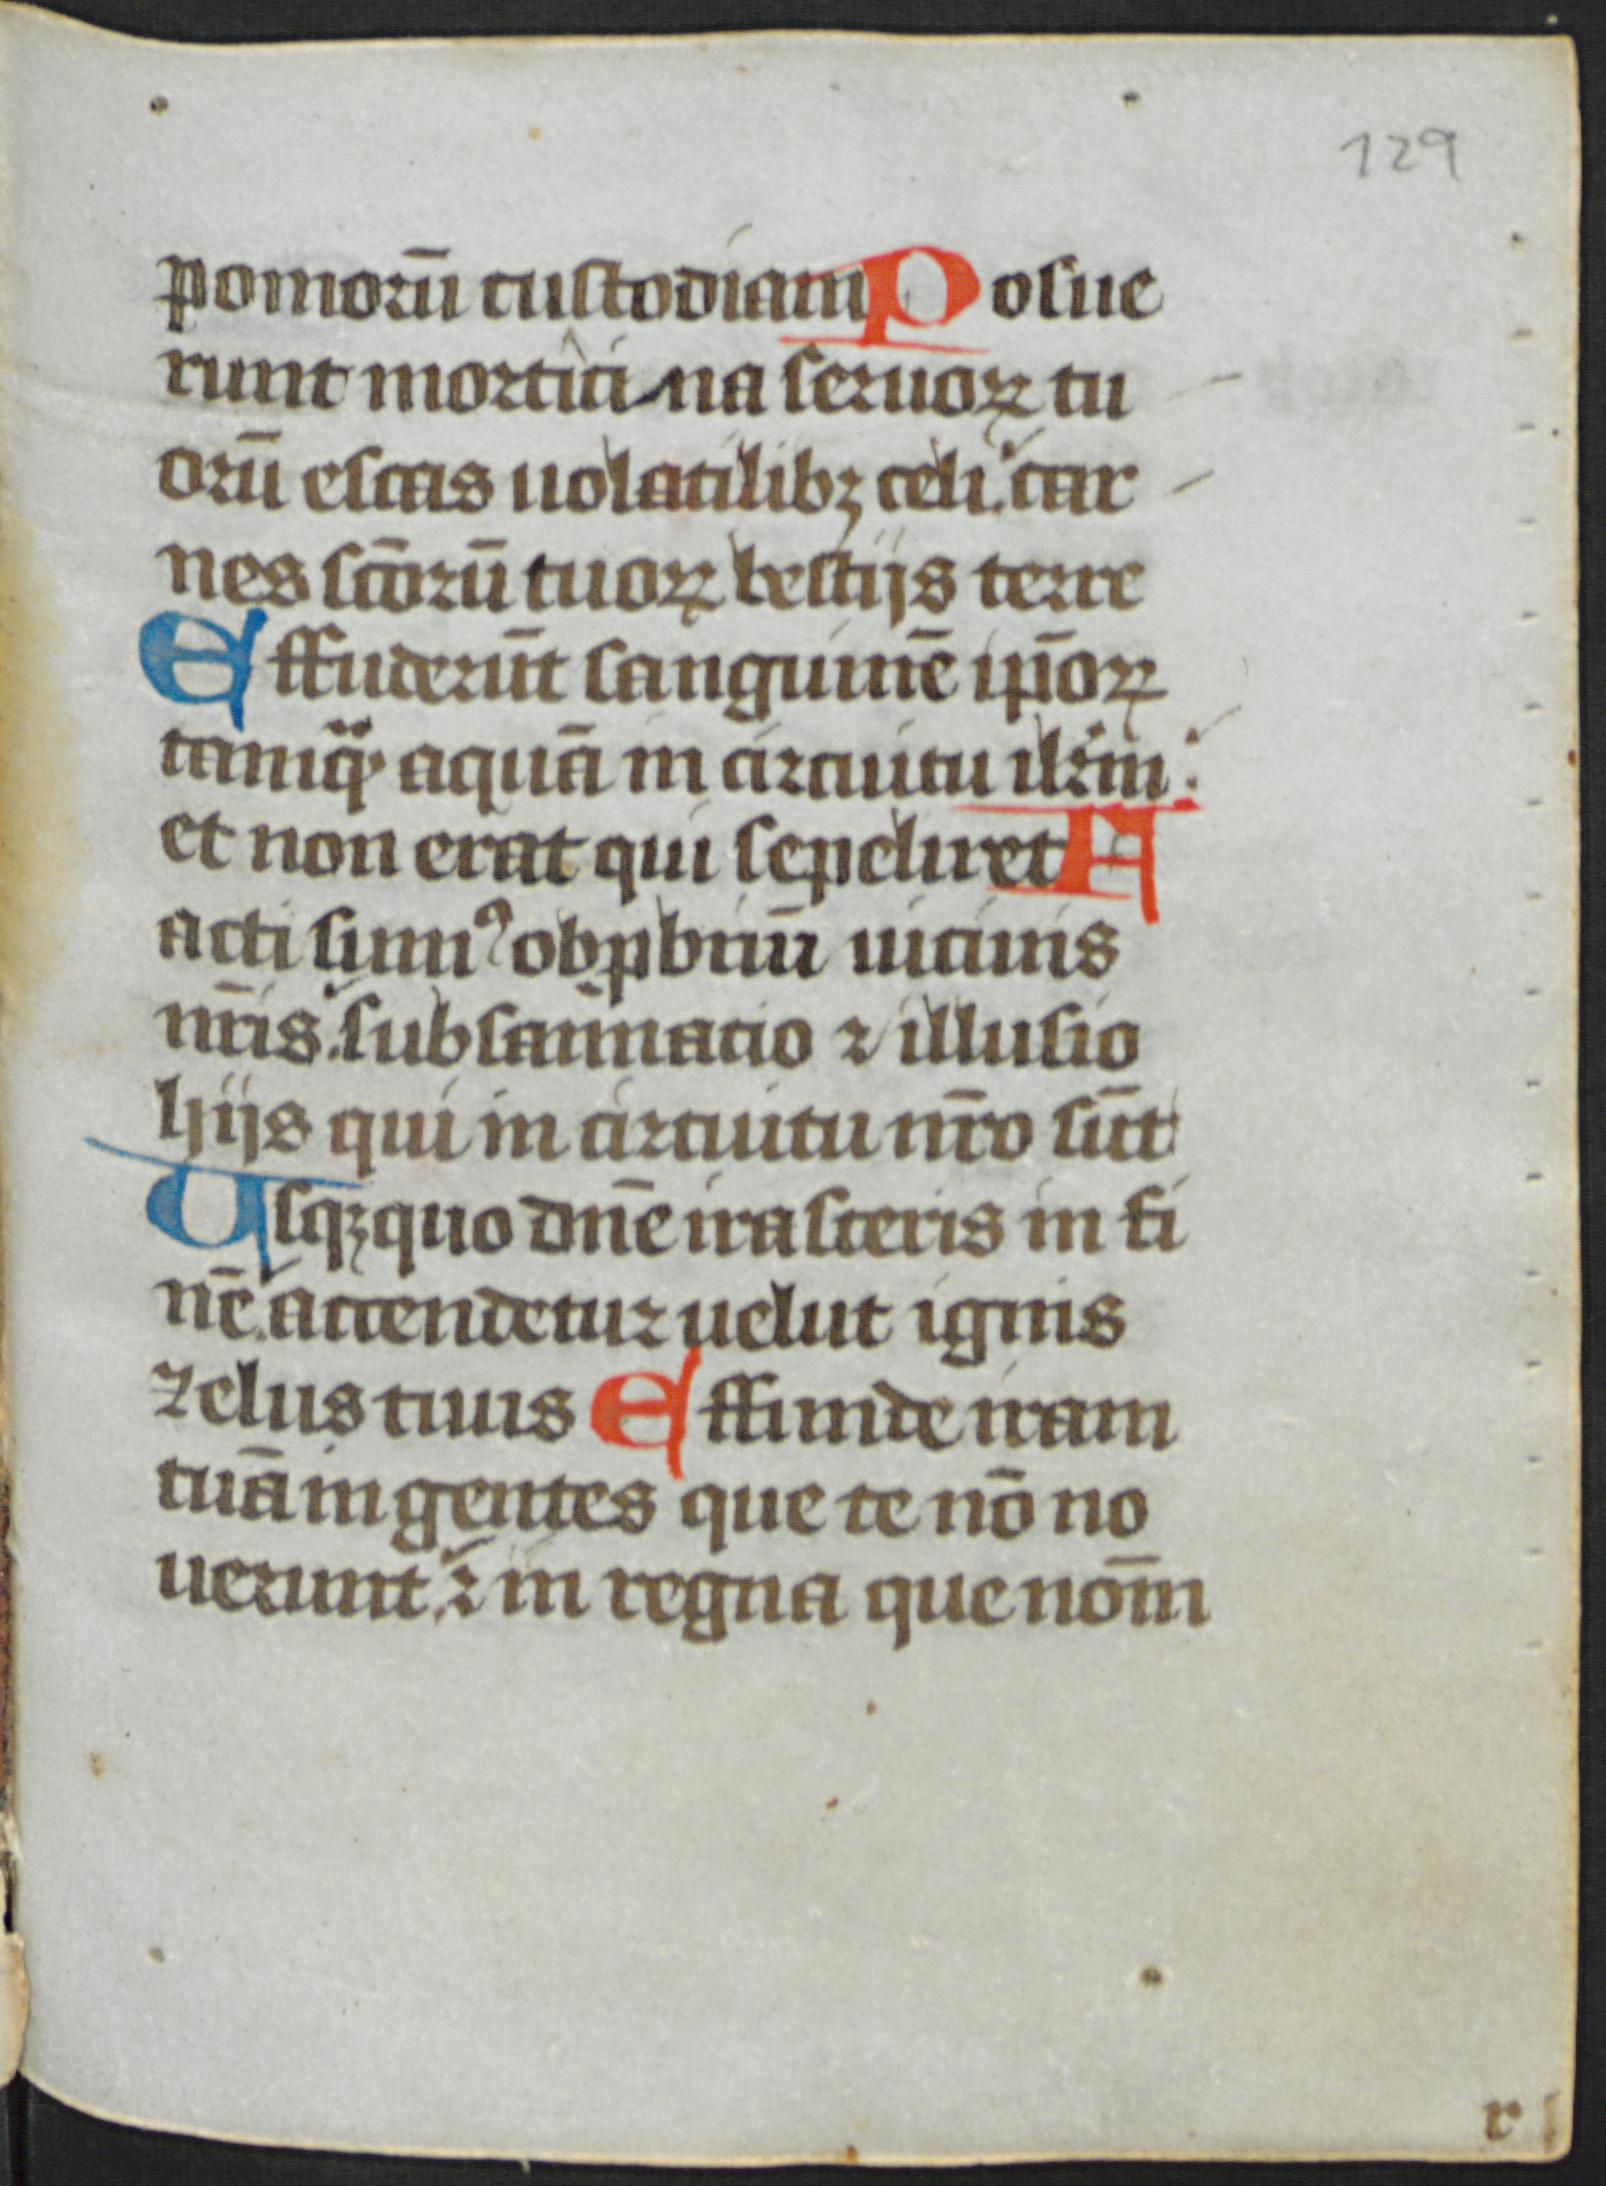 129
pomorū custodiam Posue
runt morticina seruoꝝ tu
orū escas uolatilibꝫ celi. car
nes sc̄orū tuoꝝ bestijs terre
Effuderūt sanguinē ip̄oꝝ
tamqͣ aquā in circuitu ilrm̄:
et non erat qui sepeliret A
acti sumꝰ obꝓbriū uicinis
nr̄is. subsannacio ⁊ illusio
hijs qui in circuitu nr̄o sūt
Usqꝫquo dn̄e irasceris in fi
nē. accendetur uelut ignis
zelus tuus Effunde iram
tuā in gentes que te nō no
uerunt. ⁊ in regna que nom̄
r